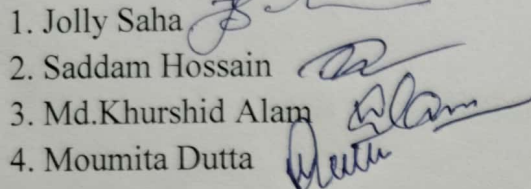 1. Jolly Saha
2. Saddam Hossain
3. Md.Khurshid Alam Alam
4. Moumita Dutta